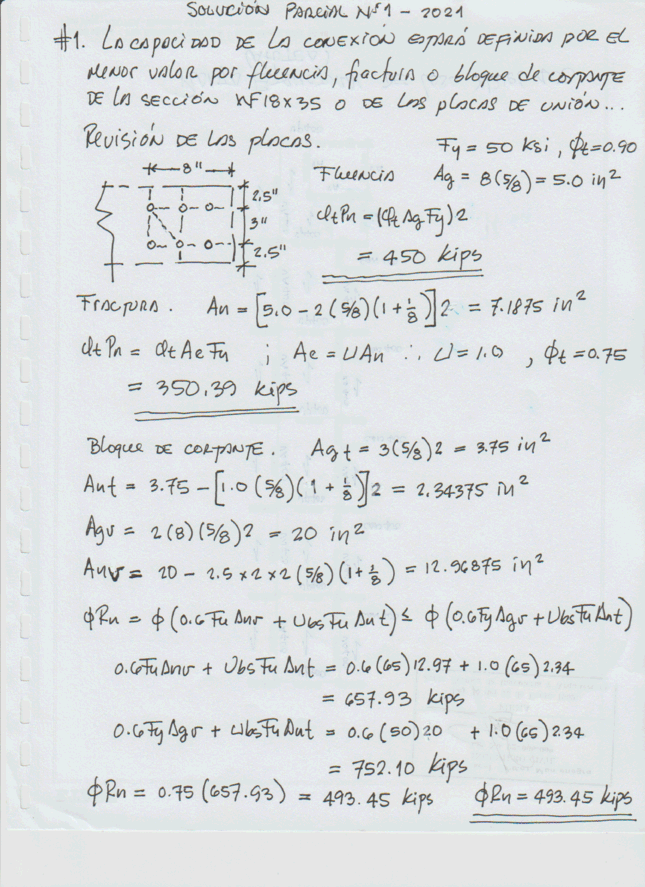 SOLUCIÓN PARCIAL Nº1 - 2021
#1. LA CAPACIDAD DE LA CONEXIÓN ESTARÁ DEFINIDA POR EL
MENOR VALOR POR fluencia, fractura o bloque de cortante
DE LA SECCIÓN WF18x35 O DE LAS PLACAS DE UNIÓN...
REVISIÓN DE LAS PLACAS.
Fy = 50 ksi, ϕt=0.90
8"
2.5"
3"
2.5"
FLUENCIA Ag = 8(5/8) = 5.0 in²
ϕtPn = (ϕtAgFy)2
= 450 kips
FRACTURA. An = [5.0 - 2(5/8)(1+1/8)]2 = 7.1875 in²
ϕtPn = ϕtAeFu ; Ae = UAn ∴ U = 1.0 , ϕt=0.75
= 350.39 kips
BLOQUE DE CORTANTE. Agt = 3(5/8)2 = 3.75 in²
Ant = 3.75 - [1.0(5/8)(1+1/8)]2 = 2.34375 in²
Agv = 2(8)(5/8)2 = 20 in²
Anv = 20 - 2.5x2x2(5/8)(1+1/8) = 12.96875 in²
ϕRn = ϕ(0.6FuAnv + UbsFuAnt) ≤ ϕ(0.6FyAgv + UbsFuAnt)
0.6FuAnv + UbsFuAnt = 0.6(65)12.97 + 1.0(65)2.34
= 657.93 kips
0.6FyAgv + UbsFuAnt = 0.6(50)20 + 1.0(65)2.34
= 752.10 kips
ϕRn = 0.75(657.93) = 493.45 kips ϕRn = 493.45 kips